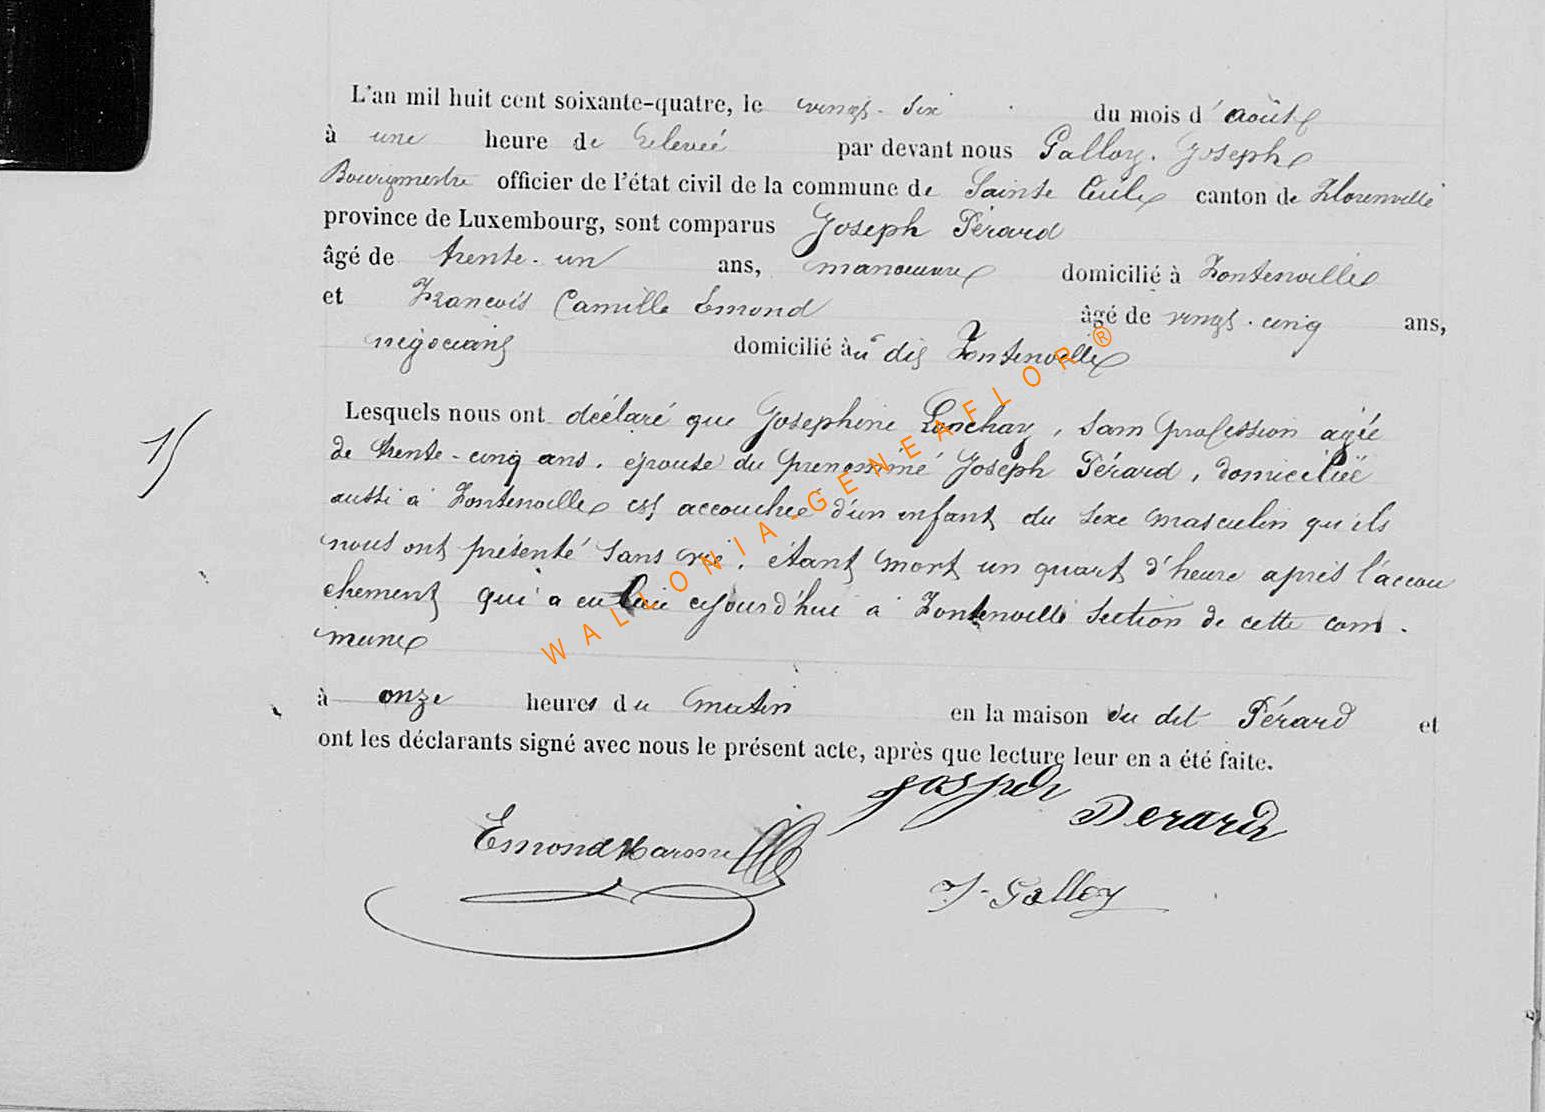 L'an mil huit cent soixante-quatre, le vingt-six du mois d'août
à une heure de relevée par devant nous Galloy Joseph
Bourgmestre officier de l'état civil de la commune de Sainte Cécile canton de Florenville
province de Luxembourg, sont comparus Joseph Pérard
âgé de trente-un ans, manoeuvre domicilié à Fontenoille
et François Camille Emond âgé de vingt-cinq ans,
négociant domicilié au dit Fontenoille
Lesquels nous ont déclaré que Joséphine Lonchay, sans profession agée
15
de trente-cinq ans, épouse du prénommé Joseph Pérard, domiciliée
aussi à Fontenoille est accouchée d'un enfant du sexe masculin qu'ils
nous ont présenté sans vie, étant mort un quart d'heure après l'accou
chement qui a eu lieu aujourd'hui à Fontenoille section de cette com-
mune
à onze heures du matin en la maison du dit Pérard et
ont les déclarants signé avec nous le présent acte, après que lecture leur en a été faite.
Joseph Perard
Emond
J. Galloy
WALLONIA-GENEAFLOR®